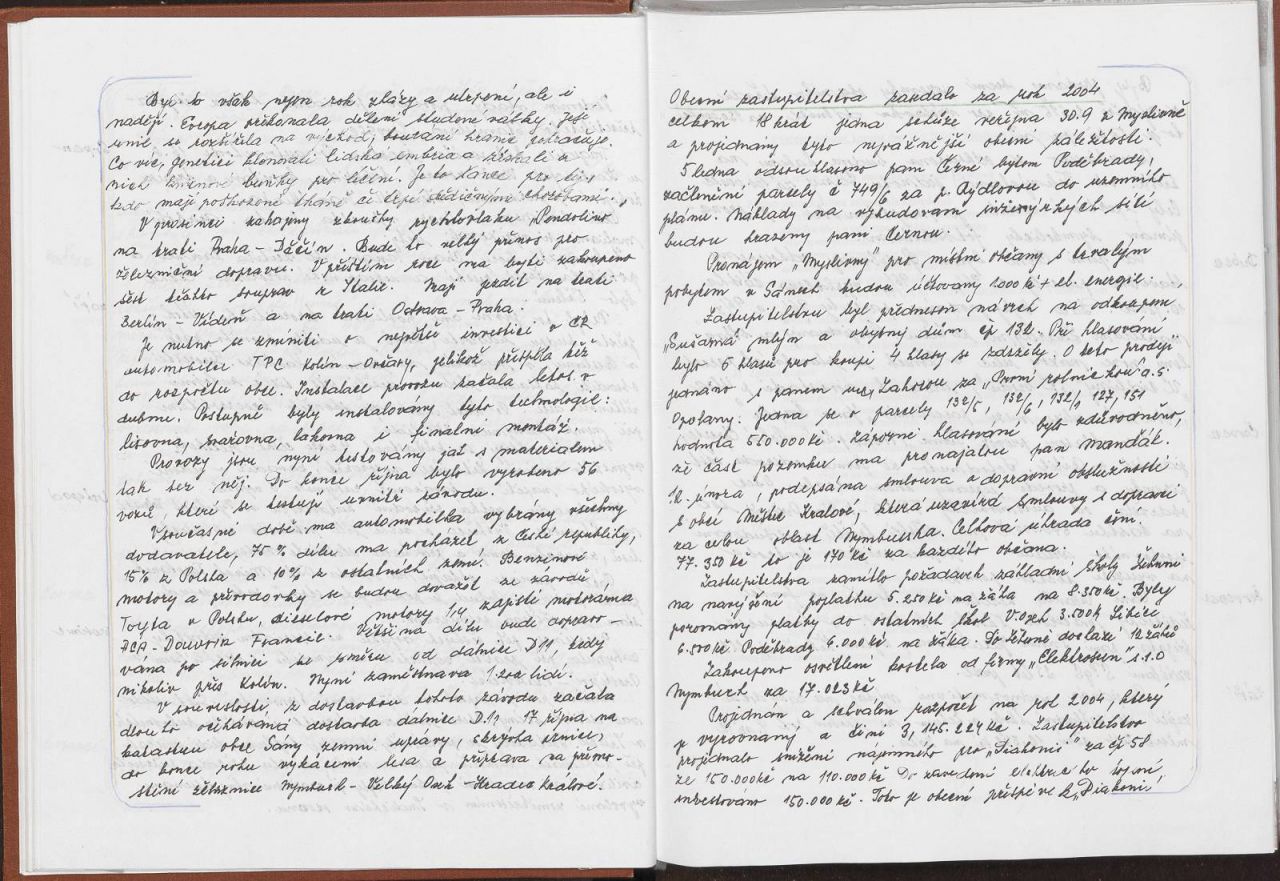 Byl to však nejen rok zkázy a utrpení, ale i
nadějí. Evropa překonala dělení studené války. Její
unie se rozšířila na východ, bourání hranic pokračuje.
Co více, genetici klonovali lidská embria a získali z
nich kmenové buňky pro léčení. Je to šance pro ty,
kdo mají poškozené tkáně či trpí dědičnými chorobami.
V prosinci zahájeny zkoušky rychlovlaku "Pendolino
na trati Praha - Děčín. Bude to velký přínos pro
železniční dopravu. V příštím roce má býti zakoupeno
šest těchto souprav z Italie. Mají jezdit na trati
Berlín - Vídeň a na trati Ostrava - Praha.
Je nutno se zmíniti o největší investici v ČR
automobilce TPC Kolín - Ovčáry, jelikož přispěla též
do rozpočtu obce. Instalace provozu začala letos v
dubnu. Postupně byly instalovány tyto technologie:
lisovna, svařovna, lakovna i finalní montáž.
Provozy jsou nyní testovány jak s materialem
tak bez něj. Do konce října bylo vyrobeno 56
vozů, které se testují uvnitř závodu.
V současné době má automobilka vybrány všechny
dodavatele, 75% dílu má pocházet z České republiky,
15% z Polska a 10% z ostatních zemí. Benzinové
motory a převodovky se budou dovážet ze závodů
Toyota v Polsku, dieselové motory 1,4 zajistí motorárna
PCA - Douvrin Francie. Většina dílů bude dopravo-
vana po silnici ve směru od dalnice D11, tedy
nikoliv přes Kolín. Nyní zaměstnává 1.200 lidí.
V souvislosti, z dostavbou tohoto závodu začala
dlouho očekávaná dostavba dalnice D11 17 října na
katastru obce Sány zemní úpravy, skrývka ornice,
do konce roku vykácení lesa a příprava na přemo-
stění železnice Nymburk - Velký Osek - Hradec Králové.
Obecní zastupitelstvo zasedalo za rok 2004
celkem 18 krát jedna schůze veřejná 30.9 v Myslivně
a projednány tyto nejvážnější obecní záležitosti.
5 ledna odsouhlaseno paní Černé bytem Poděbrady,
začlenění parcely č 749/6 za p. Rýdlovou do uzemního
plánu. Náklady na vybudování inženýrských sítí
budou hrazeny paní Černou.
Pronájem "Myslivny" pro místní občany s trvalým
pobytem v Sánech budou účtovany 1000 kč + el. energie.
Zastupitelstvu byl přednesen návrh na odkoupení
"Sušárna" mlýn a obytný dům čp 132. Při hlasování
bylo 5 hlasů pro koupi 4 hlasy se zdržely. O této prodeji
jednáno s panem Zahorou za "První rolnickou" a.s.
Opolany. Jedna se o parcely 132/5, 132/6, 132/1 127, 151
hodnota 550.000 kč. záporné hlasování bylo zdůvodněno,
že část pozemku má pronajatou pan Mandák.
12. února, podepsána smlouva o dopravní obslužnosti
s obcí Městec Králové, která uzavírá smlouvy s dopravci
za celou oblast Nymburska. Celková úhrada činí
77.350 kč to je 170 kč za každého občana.
Zastupitelstvo zamítlo požadavek základní školy Žehuň
na navýšení poplatku 5.250 kč na žáka na 8.350 kč. Byly
porovnány platby do ostatních škol V. Osek 3.500 k Libice
6.500 kč Poděbrady 6.000 kč na žáka. Do Žehuně dochází 12 žáků
Zakoupeno osvětlení kostela od firmy "Elektrosun" s.r.o
Nymburk za 17.023 kč
Projednán a schválen rozpočet na rok 2004, který
je vyrovnaný a činí 3,145.224 kč Zastupitelstvo
projednalo snížení nájemného pro "Diakonii" za čp 58
ze 150.000 kč na 110.000 kč Do zavedení elektrického topení,
investováno 150.000 kč. Toto je obecní příspěvek "Diakonii.